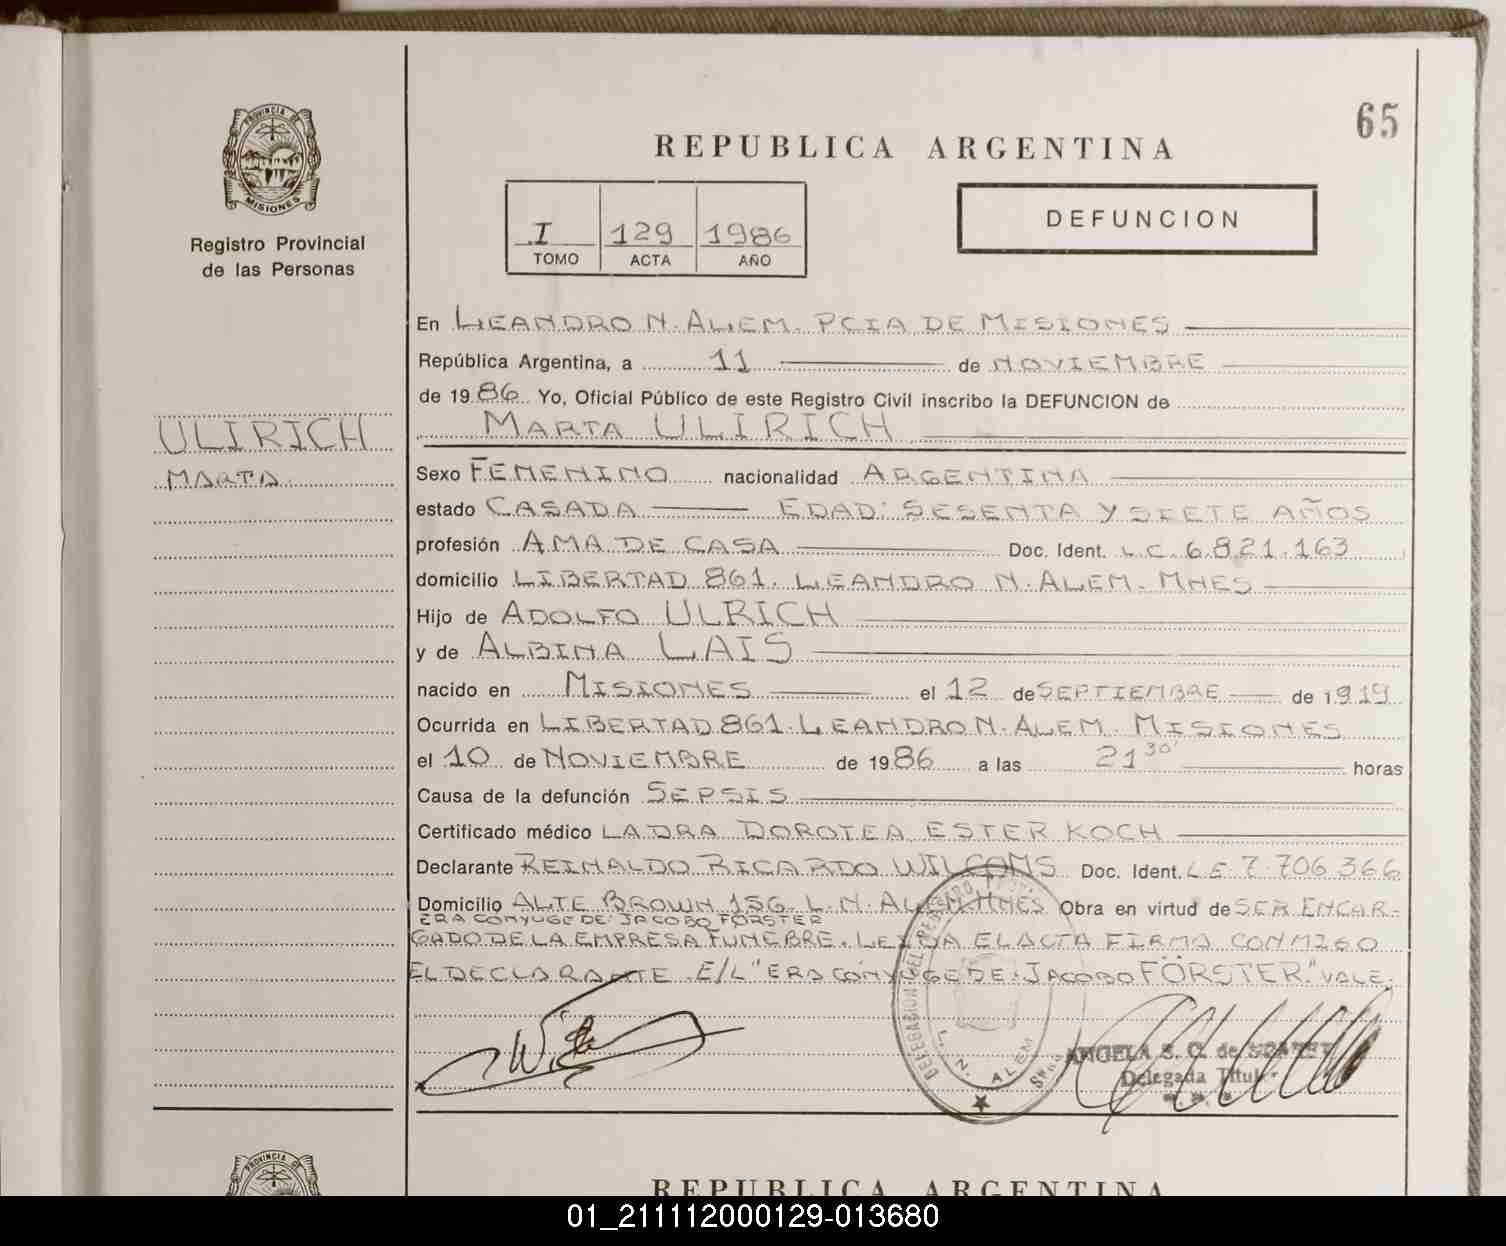 65
REPUBLICA ARGENTINA
PROVINCIA DE
MISIONES
Registro Provincial
de las Personas
I 129 1986
TOMO ACTA AÑO
DEFUNCION
ULIRICH
MARTA
En LEANDRO N. ALEM. PCIA DE MISIONES
República Argentina, a 11 de NOVIEMBRE
de 1986 Yo, Oficial Público de este Registro Civil inscribo la DEFUNCION de
MARTA ULIRICH
Sexo FEMENINO nacionalidad ARGENTINA
estado CASADA EDAD: SESENTA Y SIETE AÑOS
profesión AMA DE CASA Doc. Ident. L.C. 6.821.163
domicilio LIBERTAD 861. LEANDRO N. ALEM. MNES
Hijo de ADOLFO ULRICH
y de ALBINA LAIS
nacido en MISIONES el 12 de SEPTIEMBRE de 1919
Ocurrida en LIBERTAD 861. LEANDRO N. ALEM. MISIONES
el 10 de NOVIEMBRE de 1986 a las 21 30 horas
Causa de la defunción SEPSIS
Certificado médico LA DRA DOROTEA ESTER KOCH
Declarante REINALDO RICARDO WILCOMS Doc. Ident. L E 7.706.366
Domicilio ALTE BROWN 156. L. N. ALEM. MNES Obra en virtud de SER ENCAR-
ERA CONYUGE DE: JACOBO FÖRSTER
GADO DE LA EMPRESA FUNEBRE. LEIDA EL ACTA FIRMA CONMIGO
EL DECLARANTE. E/L "ERA CONYUGE DE: JACOBO FÖRSTER." VALE.
DELEGACION DEL REGISTRO PROV.
L. N. ALEM
ANGELA S. C. de
Delegada Titular
PROVINCIA DE
REPUBLICA ARGENTINA
01_211112000129-013680